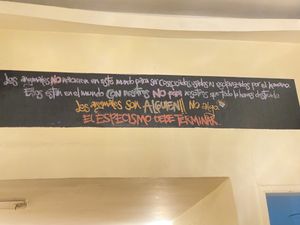 Los animales NO nacieron en este mundo para ser cosificados usados ni esclavizados por el humano
Ellos están en el mundo CON nosotros NO para nosotros que todo lo hemos destruido
Los animales son ALGUIEN!! No algo.
EL ESPECISMO DEBE TERMINAR